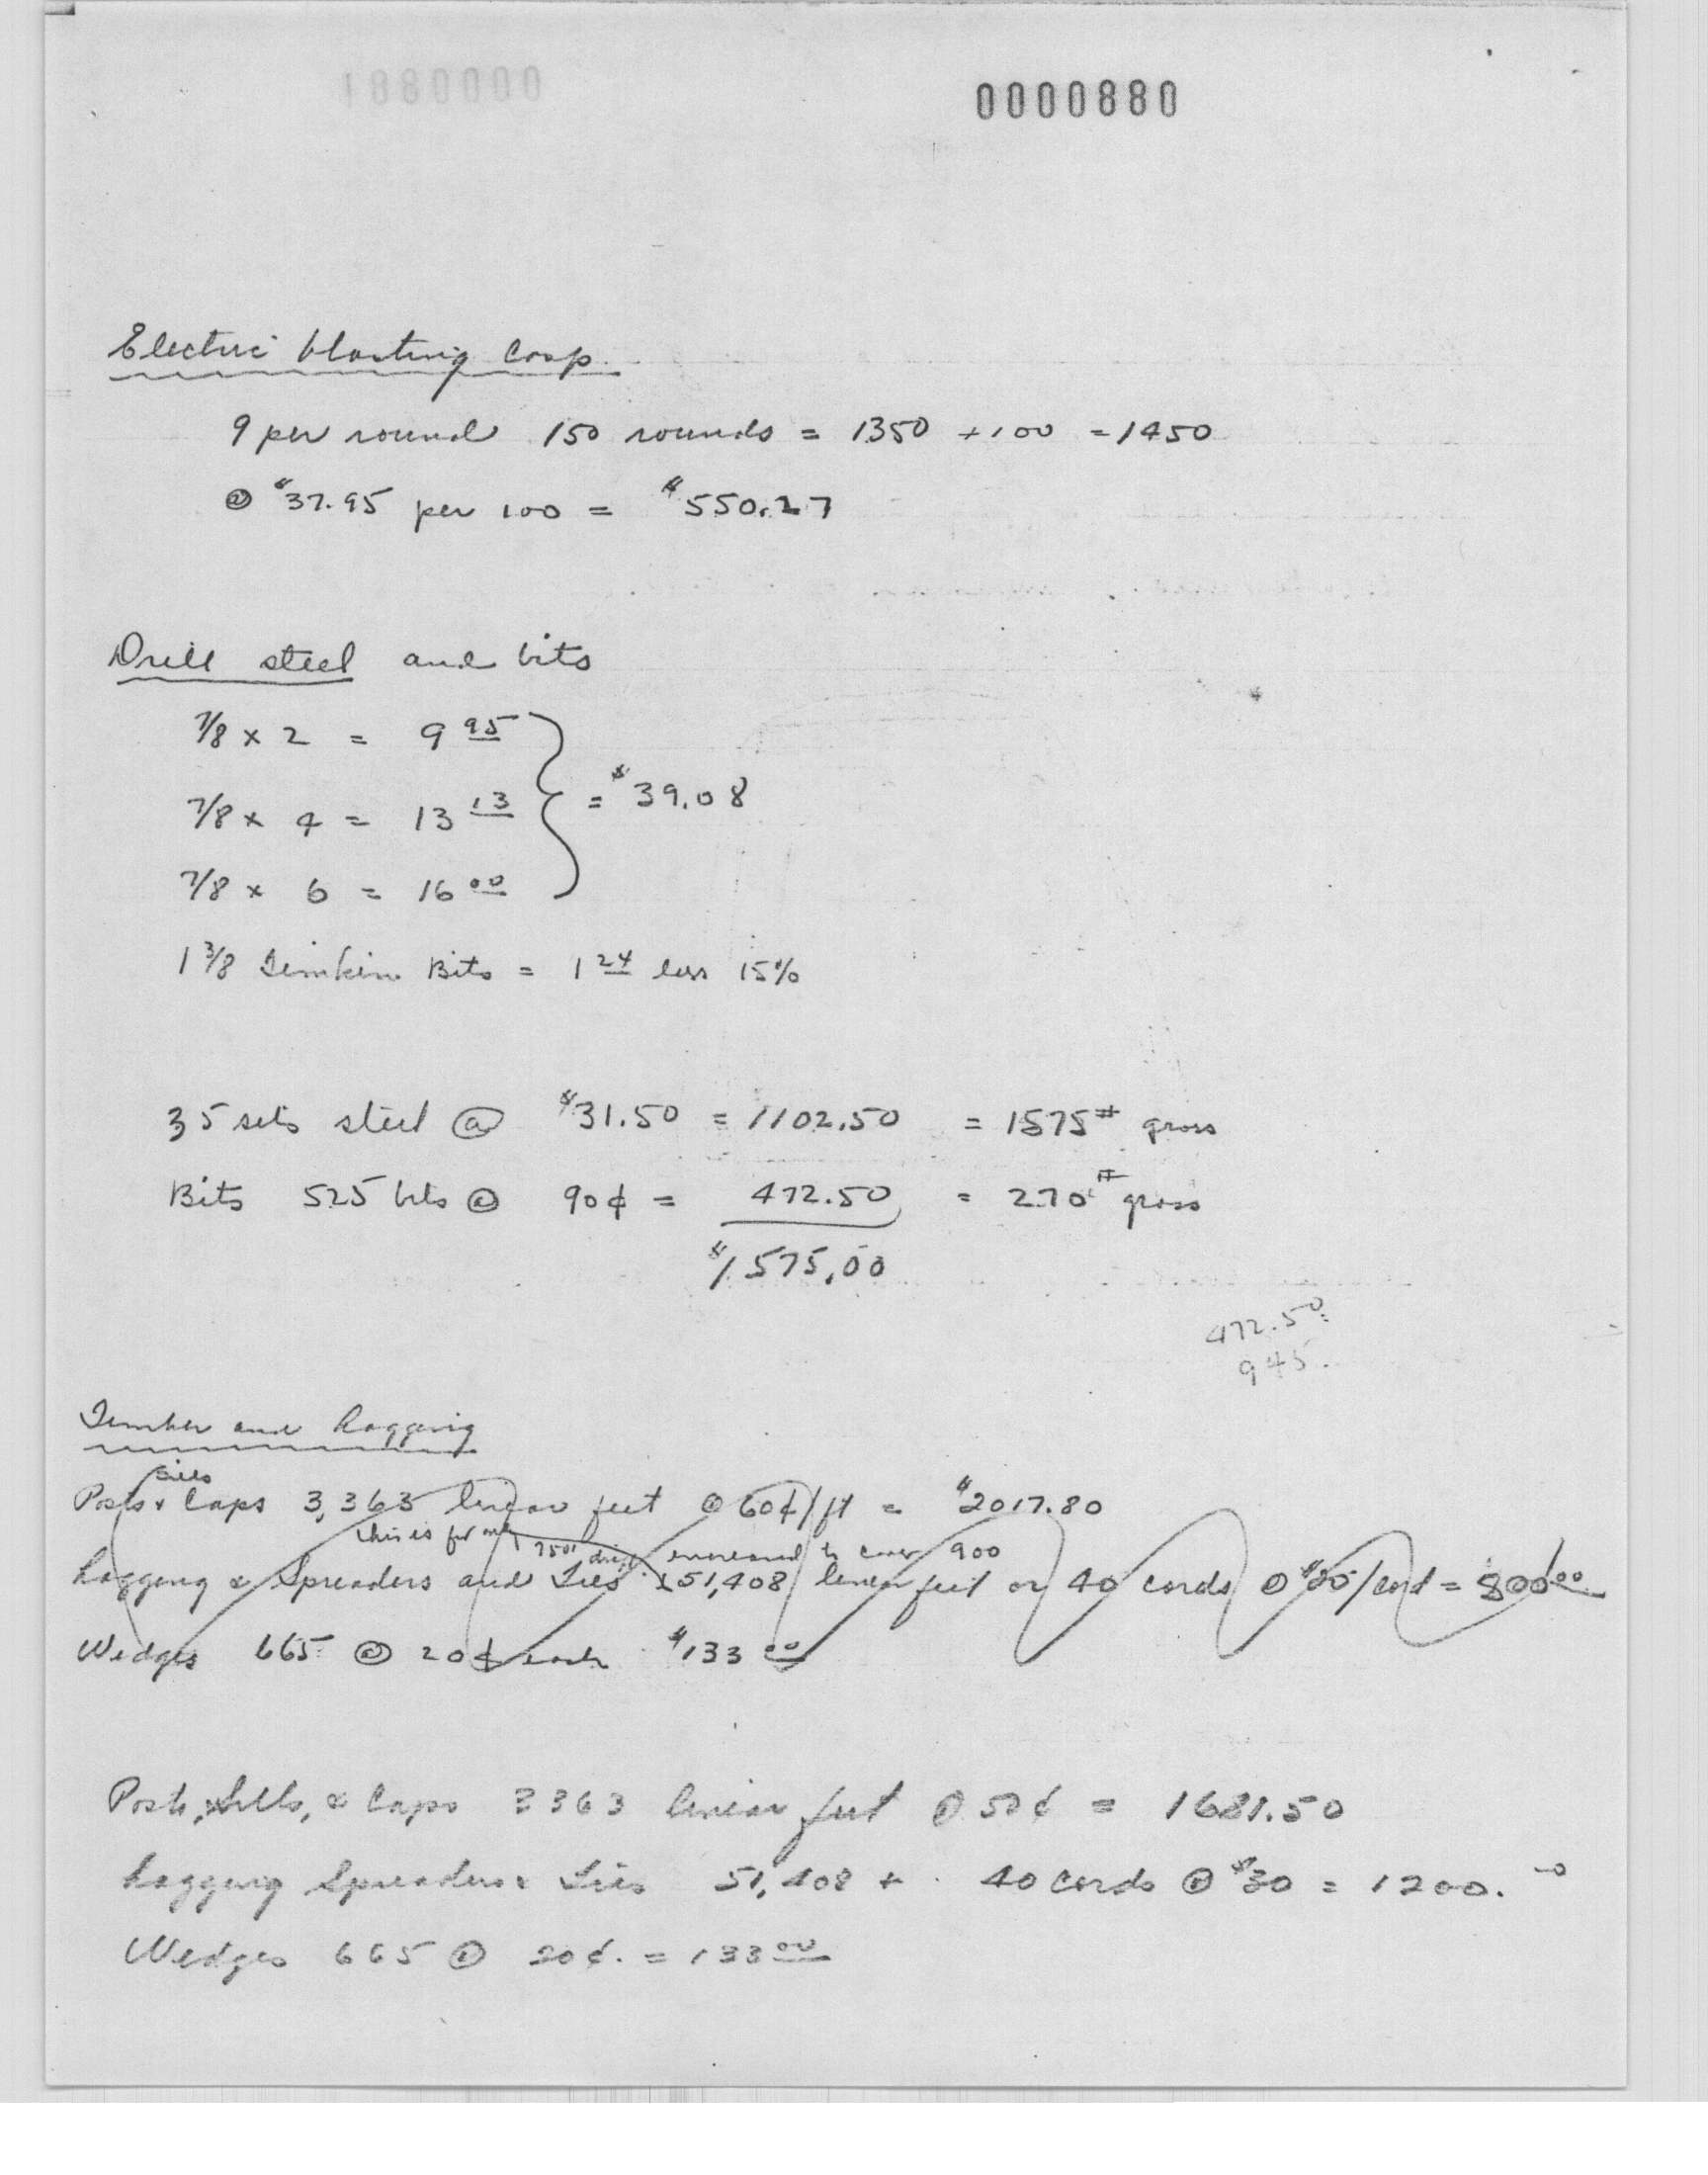 1880000
0000880
Electric blasting Caps.
9 per round 150 rounds = 1350 + 100 = 1450
@ $37.95 per 100 = $550.27
Drill steel and bits
7/8 x 2 = 9 95
7/8 x 4 = 13 13
= $39.08
7/8 x 6 = 16 00
1 3/8 Timkin Bits = 1 24 less 15%
35 sets steel @ $31.50 = 1102.50 = 1575# gross
Bits 525 bits @ 90¢ = 472.50 = 270# gross
$1575.00
472.50
945.
Timber and Lagging
Sills
Posts & Caps 3,363 linear feet @ 60¢/ft = $2017.80
This is for only 750' drift increased to cover 900
Lagging & Spreaders and Ties 51,408 linear feet or 40 cords @ $20/cord = 800 00
Wedges 665 @ 20¢ each $133 00
Posts, Sills, & Caps 3363 linear feet @ 50¢ = 1681.50
Lagging Spreaders & Ties 51,408 40 cords @ $30 = 1200.00
Wedges 665 @ 20¢. = 133 00